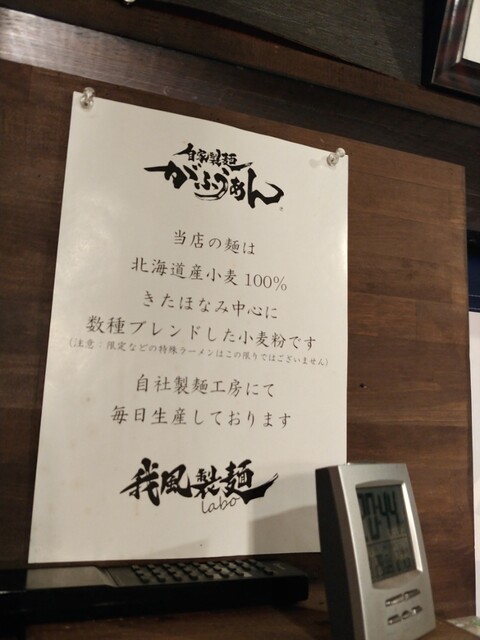 自家製麺
がふうあん
当店の麺は
北海道産小麦100%
きたほなみ中心に
数種ブレンドした小麦粉です
(注意:限定などの特殊ラーメンはこの限りではございません)
自社製麺工房にて
毎日生産しております
我風製麺
labo